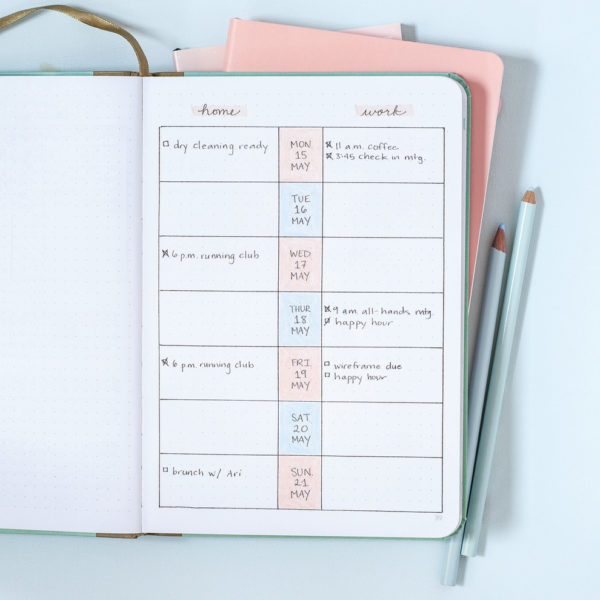 home work
dry cleaning ready
MON.
15
MAY
11 a.m. coffee
3:45 check in mtg.
TUE
16
MAY
6 p.m. running club
WED.
17
MAY
THUR
18
MAY
9 a.m. all-hands mtg.
happy hour
6 p.m. running club
FRI.
19
MAY
wireframe due
happy hour
SAT
20
MAY
brunch w/ Ari
SUN.
21
MAY